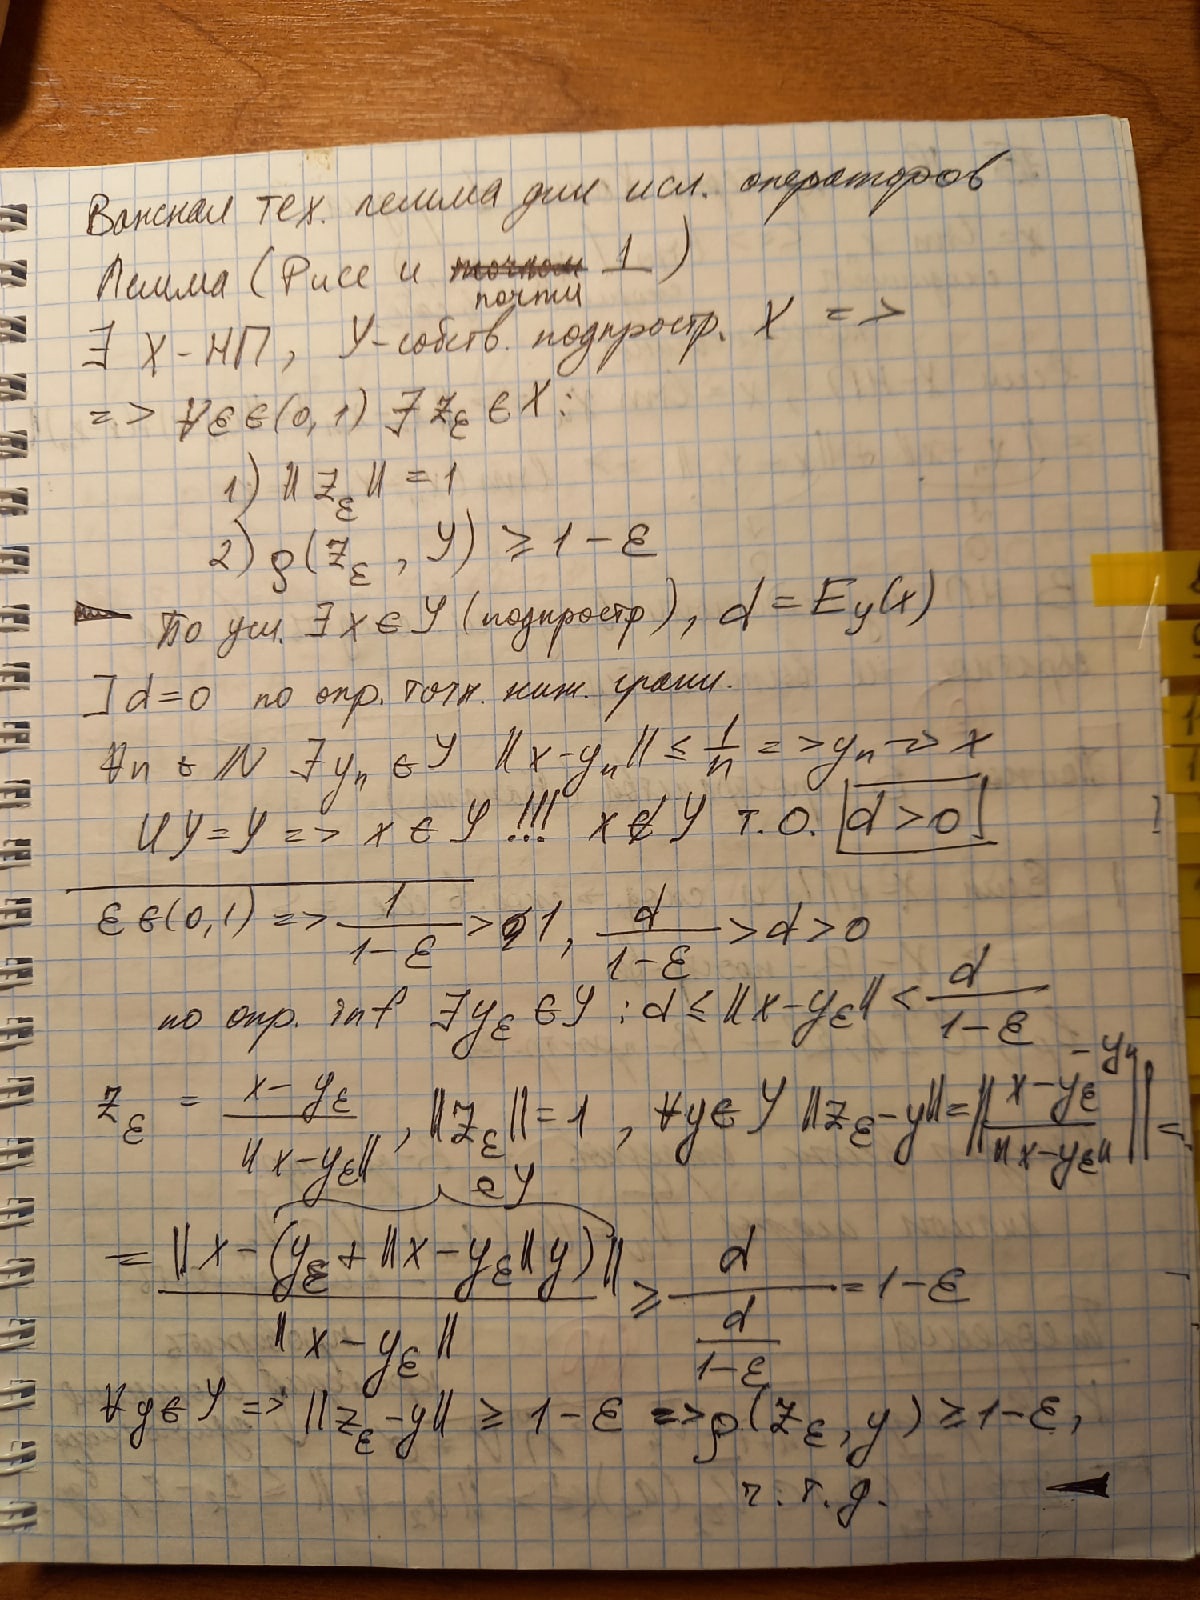 Важная тех. лемма для исл. операторов
Лемма (Рисс и почти 1)
∃ X-НП, Y-собств. подпростр. X =>
=> ∀ε∈(0,1) ∃ z_ε ∈ X:
1) ||z_ε|| = 1
2) ρ(z_ε, Y) ≥ 1-ε
По усл. ∃ x ∈ Y (подпростр), d = E_y(x)
∃ d=0 по опр. точн. ниж. грани.
∀n ∈ N ∃ y_n ∈ Y ||x-y_n|| ≤ 1/n => y_n -> x
И Y=Y => x ∈ Y !!! x ∉ Y т.о. d>0
ε∈(0,1) => 1/(1-ε) > 1, d/(1-ε) > d > 0
по опр. inf ∃ y_ε ∈ Y : d ≤ ||x-y_ε|| < d/(1-ε)
z_ε = (x-y_ε)/||x-y_ε||, ||z_ε||=1, ∀y∈Y ||z_ε-y|| = ||(x-y_ε)/||x-y_ε|| - y|| =
∈Y
= ||x-(y_ε+||x-y_ε||y)||/||x-y_ε|| ≥ d/(d/(1-ε)) = 1-ε
∀y∈Y => ||z_ε-y|| ≥ 1-ε => ρ(z_ε, y) ≥ 1-ε,
ч.т.д.